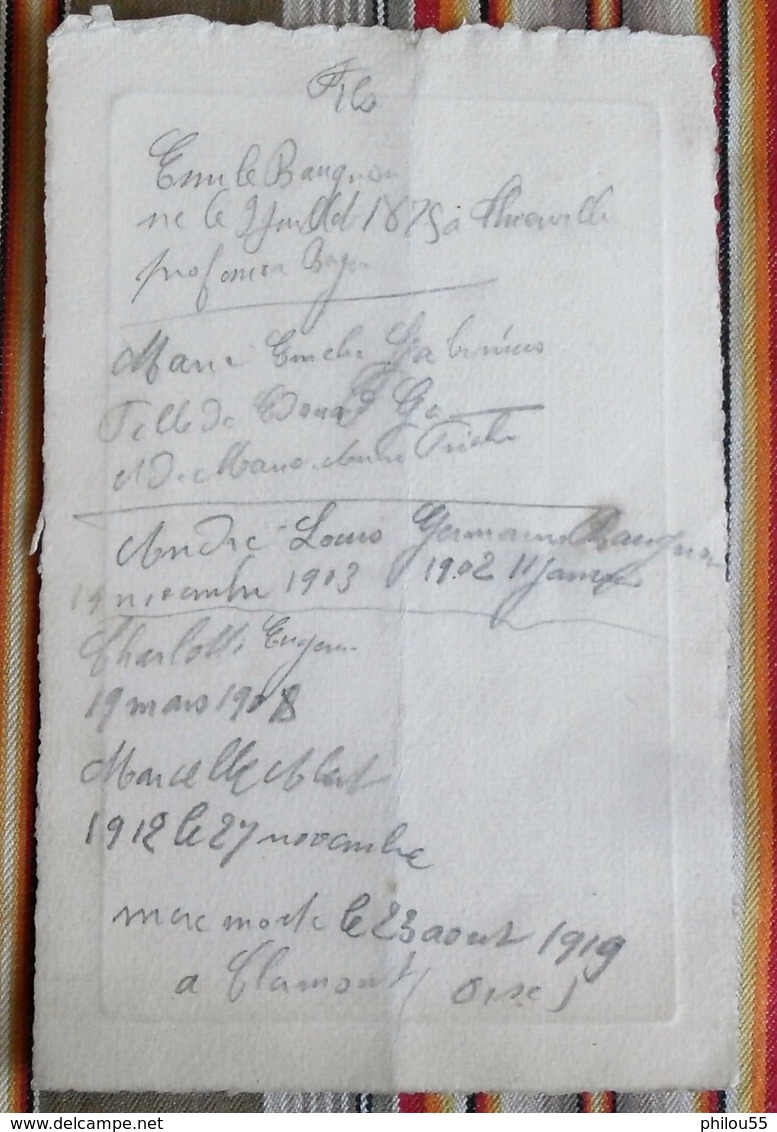 Fils
Emile Baugnon
ne le 9 juillet 1875 a Thierville
profession
Marie Emelie
Fille de Edouard Ga
et de Marie
André Louis Germaine Baugnon
19 novembre 1903 1902 11 janv
Charlotte Eugen
19 mars 1908
Marcelle Albert
1912 le 27 novembre
mere morte le 23 aout 1919
a Clermont (Oise)
www.delcampe.net
philou55